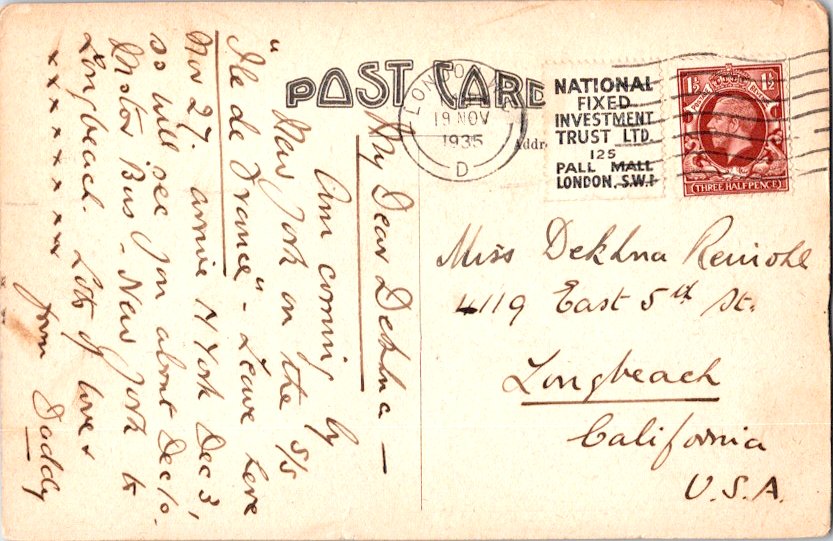 POST CARD
LONDON
19 NOV
1935
D
Addr
NATIONAL
FIXED
INVESTMENT
TRUST LTD.
125
PALL MALL
LONDON, S.W.1
1½ 1½
(THREE HALFPENCE)
My Dear Dekhna —
Am coming by
New York on the S/S
"Ile de France" - Leave here
Nov 27. arrive N York Dec 3,
so will see you about Dec 10.
Motor Bus - New York to
Longbeach. Lots of love &
x x x x x x x x
from Daddy
Miss Dekhna
4119 East 5th St.
Longbeach
California
U.S.A.